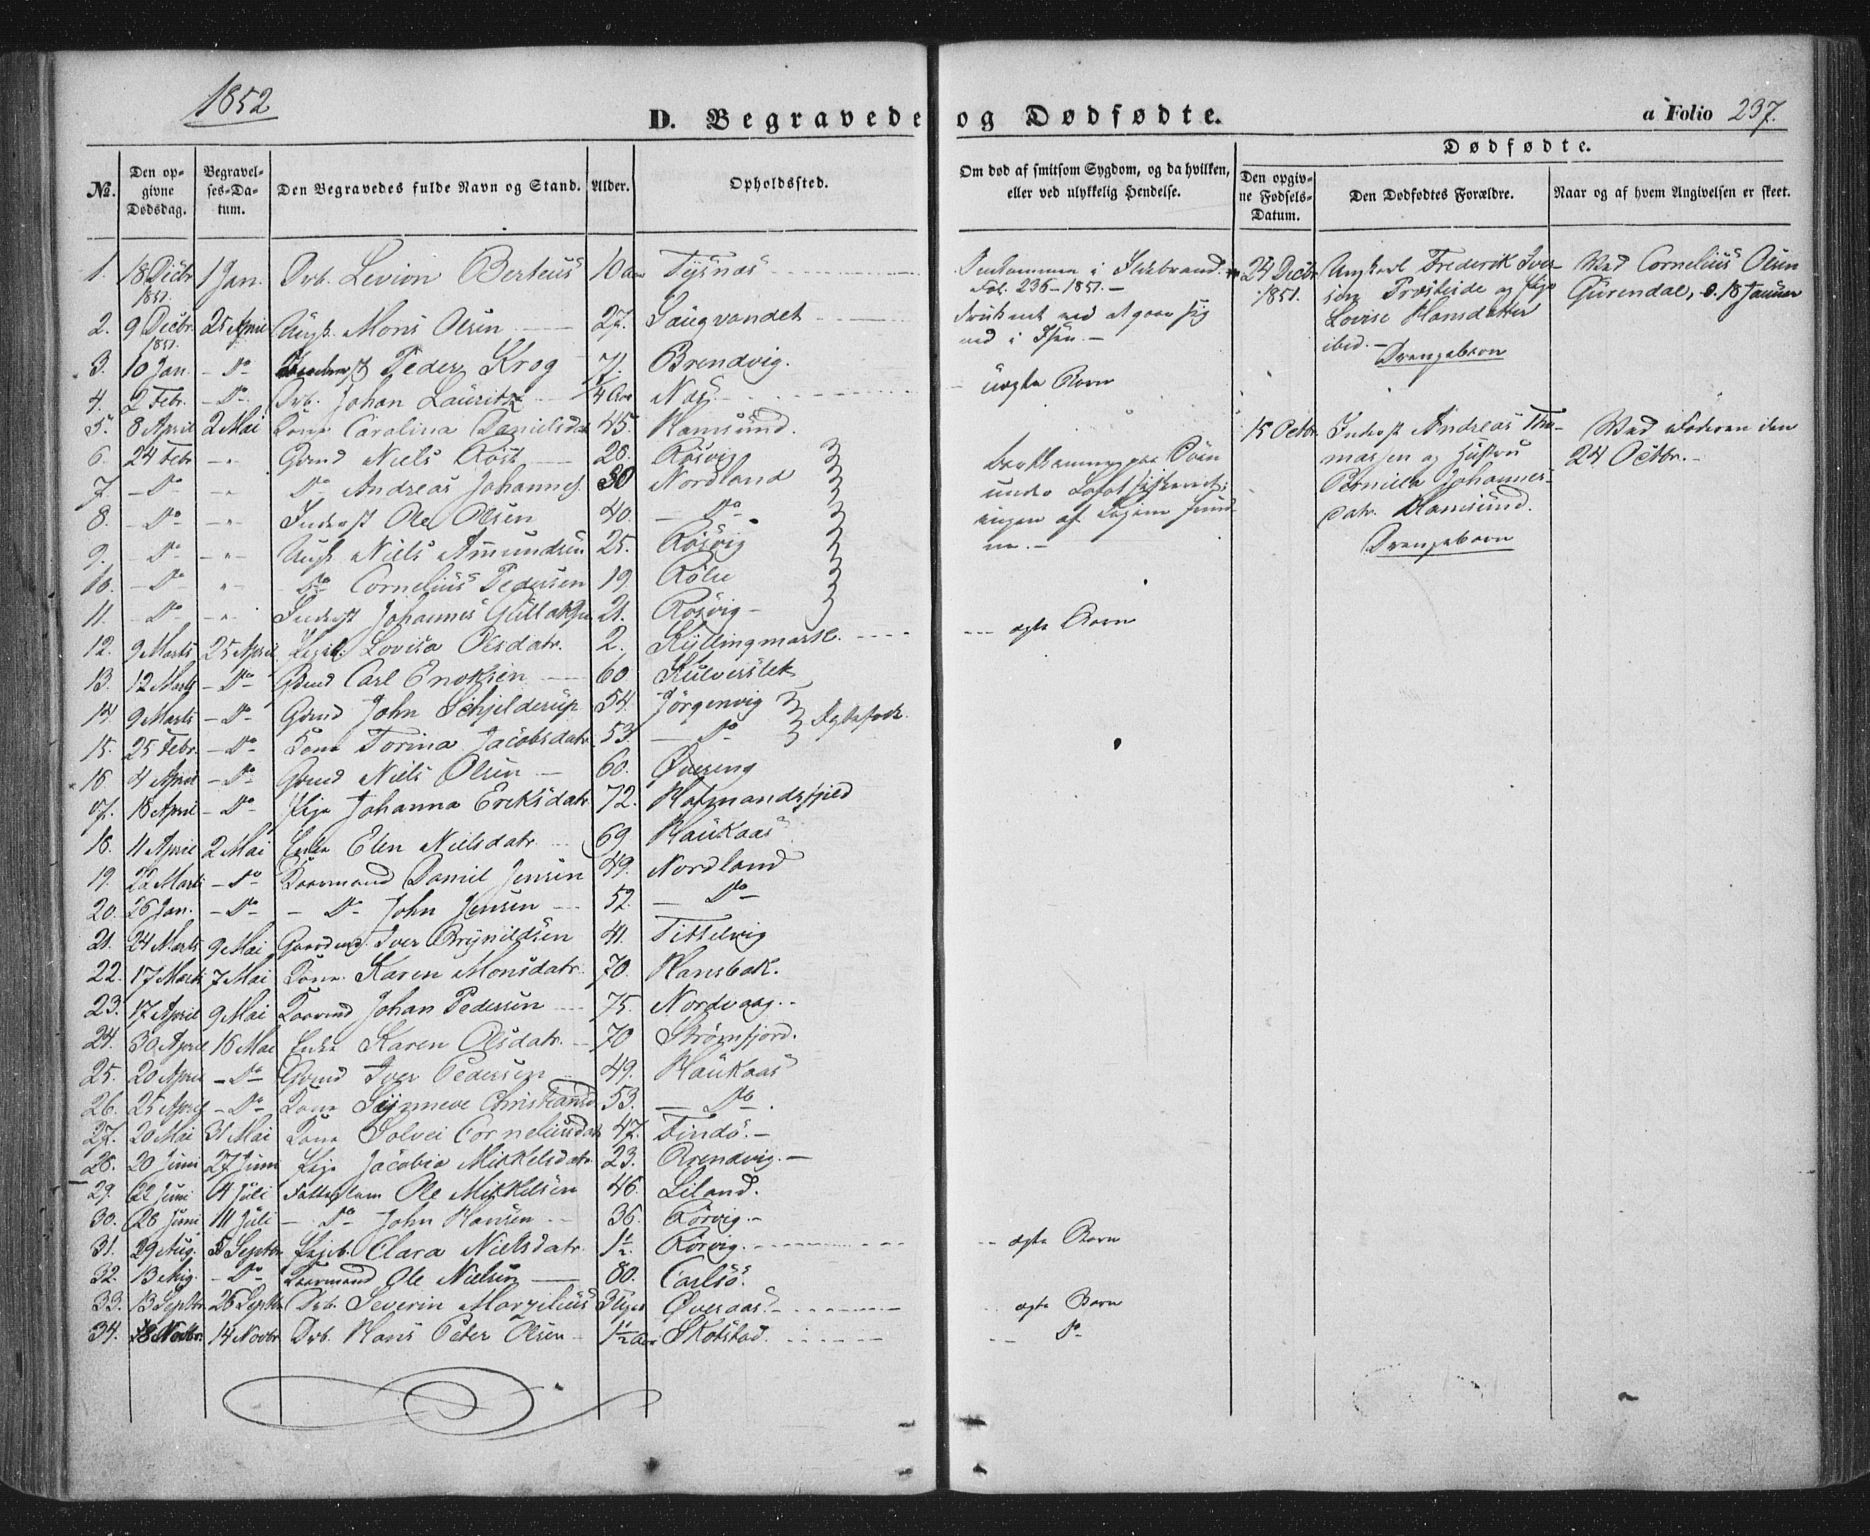 1852
D. Begravede og Dødfødte.
a Folio 237.
Dødfødte.
№.
Den opgivne Dødsdag.
Begravelses-Datum.
Den Begravedes fulde Navn og Stand.
Alder.
Opholdssted.
Om død af smitsom Sygdom, og da hvilken, eller ved ulykkelig Hendelse.
Den opgivne Fødsels-Datum.
Den Dødfødtes Forældre.
Naar og af hvem Angivelsen er skeet.
1. 18 Decbr 1851. 1 Jan. Drb. Levion Berteus 10 Tysnæs
2. 9 Decbr 1851. 25 April Ungk. Mons Olsen 27. Saugvandet
3. 10 Jan. - Do Peder Krog 71. Brendvig.
4. 2 Febr. - Do Drb. Johan Lauritz 1/4 Aar Næs
5. 8 April 2 Mai Kone Carolina Danielsdr 45. Hamsund.
6. 24 Febr -"- Gmd Niels Röst 28. Rösvig
7. - Do -"- Do Andreas Johannes 30 Nordland
8. - Do -"- Inderst Ole Olsen 40. - Do -
9. - Do -"- Ungk Niels Amundsen 25. Rösvig
10. - Do " Do Cornelius Pedersen 19. Rölie
11. - Do -"- Inderst Johannes 21. Rösvig -
12. 9 Marts 25 April Pigeb. Lovisa Olsdatr. 2. Kyllingmark.
13. 12 Marts - Do - Gmd Carl Enoksen 60 Kulverslet
14. 9 Marts - Do - Gmd John Schjelderup 54. Jörgenvig
15. 25 Febr. - Do - Kone Torina Jacobsdatr. 53. - Do - Ægtefolk.
16. 4 April - Do - Gmd Niels Olsen 60. Øvereng
17. 18 April - Do - Pige Johanna Eriksdatr 72. Hafmandsfjeld
18. 11 April 2 Mai Enke Elen Nielsdatr 69. Haukaas
19. 22 Marts - Do - Kaarmand Daniel Jensen 49. Nordland
20. 26 Jan. - Do - - Do - John Jensen 52. - Do -
21. 24 Marts 9 Mai Gaardmd. Iver Brynildsen 41. Tittelvig
22. 17 Marts 7 Mai Kone Karen Monsdatr. 70. Hansbak.
23. 17 April 9 Mai Kaarmd Johan Pedersen 75. Nordvaag.
24. 30 April 16 Mai Enke Karen Olsdatr. 70 Strömfjord.
25. 20 April - Do - Gmd Iver Pedersen 49. Haukaas
26. 25 April - Do - Kone Synneve Christiansd 53. - Do - .
27. 20 Mai 31 Mai Kone Solvei Corneliusdatr 47. Tindö. -
28. 20 Juni 27 Juni Pige Jacobia Mikkelsdatr 23. Brendvig. -
29. 22 Juni 4 Juli Fattiglem Ole Mikkelsen 46. Liland.
30. 28 Juni 11 Juli - Do - John Hansen 36. Rörvig. -
31. 29 Aug. 5 Septbr Pigeb. Clara Nielsdatr 1½. Rörvig.
32. 13 Aug. - Do - Kaarmand Ole Nielsen 80. Carlsö.
33. 13 Septbr. 26 Septbr Drb. Severin Marzilius 3 Uger Øveraas.
34. 8 Novbr. 14 Novbr Drb. Hans Peter Olsen 1½ Aar Skotstad.
Omkommen i Ildebrand.
Fol. 236-1851. -
druknet ved at gaae sig
ned i Isen. -
uægte Barn
under
ægte Barn
ægte Barn
ægte Barn
Do
24 Decbr 1851.
Ungkarl Frederik Iver-
sen Præsteide og Pige
Lovise Hansdatter
ibid. -
Drengebarn
Ved Cornelius Olsen
Gurendal, d. 18 Januar
15 Octbr.
Inderst Andreas Tho-
massen og Hustru
Pernilla Johannes-
datr. Hamsund.
Drengebarn
Ved Faderen den
24 Octbr. -